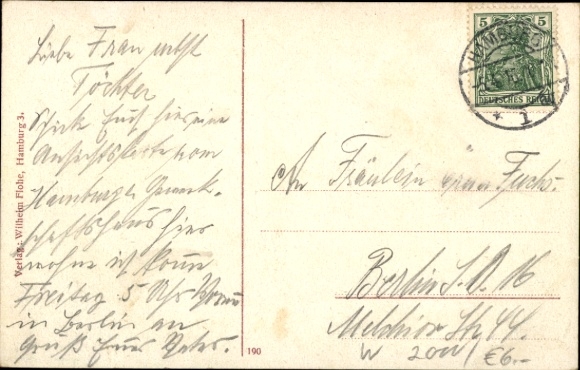 Liebe Frau nebst
Töchter
Schicke Euch hier eine
Ansichtskarte vom
Hamburger Gewerk-
schaftshaus hier
wohne ich komme
Freitag 5 Uhr
in Berlin an
Gruß Euer Vater.
Verlag: Wilhelm Flohe, Hamburg 3.
190
5 5
DEUTSCHES REICH
HAMBURG
* 1
An Fräulein Fuchs.
Berlin S.O. 16
Melchior Str 44.
W 20W
€6.-